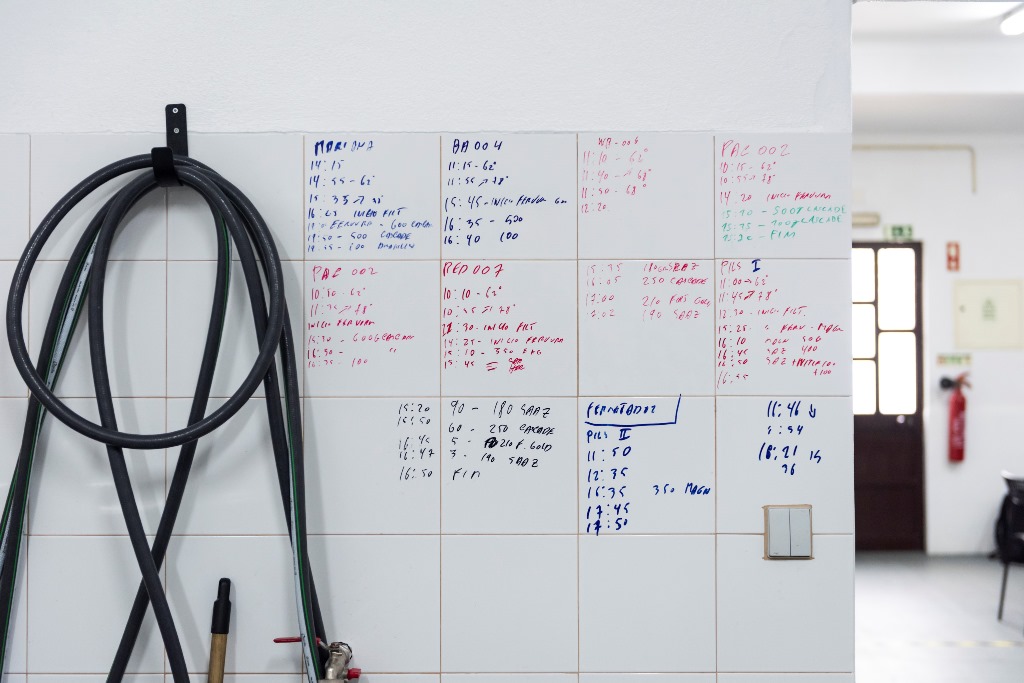 14:15
14:55-62°
15:35
16:05 INICIO FILT
BA 004
11:15-62°
11:55 ↗ 78°
15:45-INICIO
16:35 - 500
16:40 100
WB-004
11:10-62°
11:40 - 68°
11:50 - 68°
12:20
PAC 002
10:15-62°
10:55 ↗ 78°
14:20 INICIO FERVURA
15:10 - 500g CASCADE
15:15 - 100g CASCADE
15:20 - FIM
PAC 002
10:50-62°
11:35 ↗ 78°
INICIO FERVURA
15:30 - 600G CASCADE
16:30 - "
16:35 100
RED 007
10:10-62°
10:55 ↗ 78°
12:30-INICIO FILT
14:25-INICIO FERVURA
15:10 - 350
15:45
15:35 180GR SAAZ
16:05 250 CASCADE
17:00 210 GOLD
17:02 190 SAAZ
PILS I
11:00→62°
11:45 ↗ 78°
12:30-INICIO FILT.
15:25 FERV - MAGN
16:10 MAGN 500
16:45 SAZ 400
16:50 SAZ
+100
16:55
15:20 90 - 180 SAAZ
15:50 60 - 250 CASCADE
16:45 5 - 210 F. GOLD
16:47 3 - 190 SAAZ
16:50 FIM
PILS II
11:50
12:35
16:35 350 MAGN
17:45
17:50
11:46 ↓
16:21
36